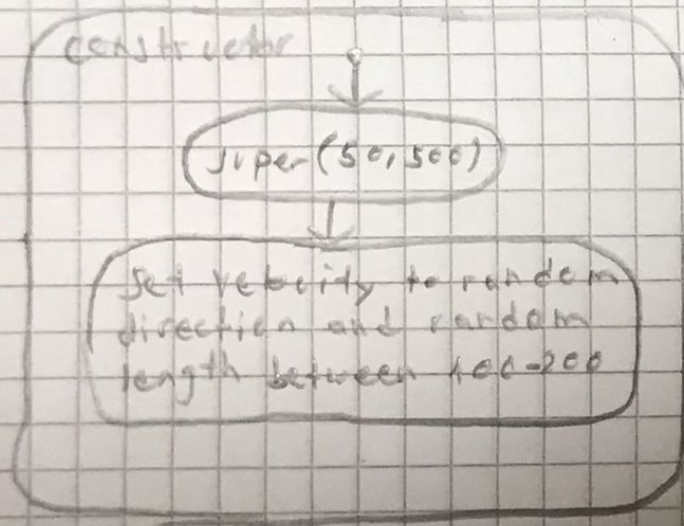 constructor
super(50,500)
set velocity to random
direction and random
length between 100-200